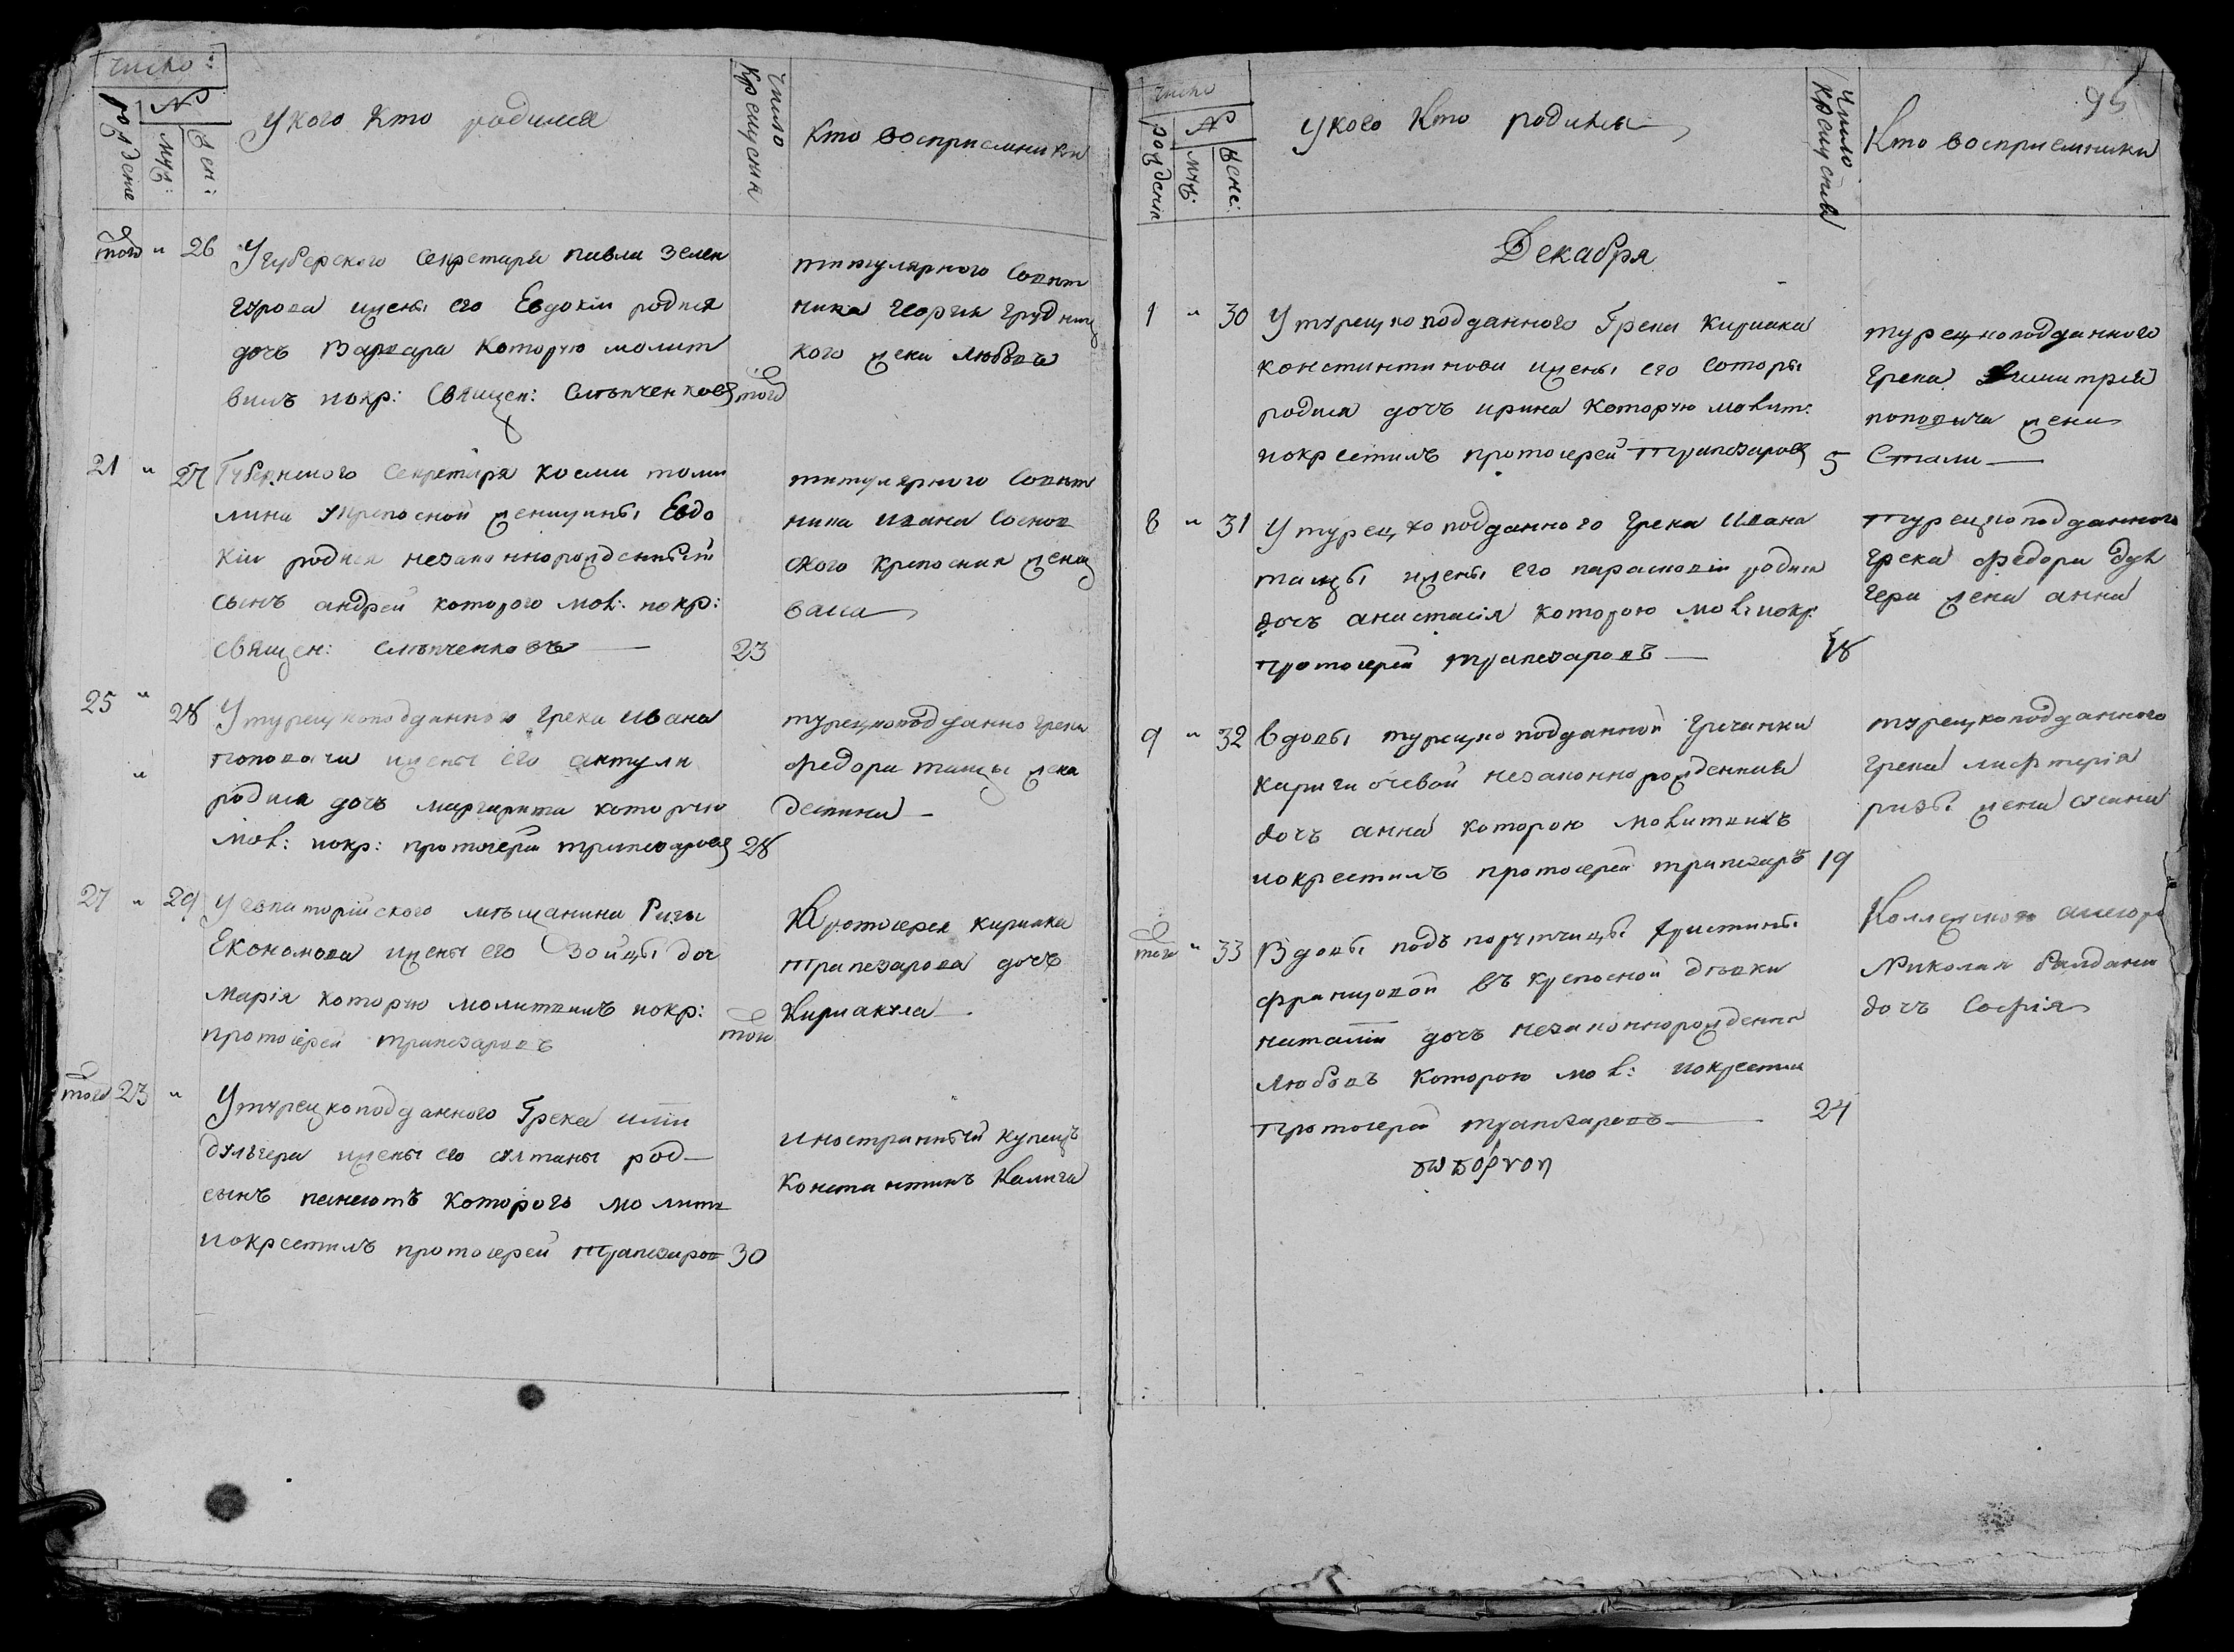 число:
рожденiя
№
муж:
жен:
Укого кто родился
число
Крещения
Кто восприемники
того " 26
Угуберского Секретаря павла зелен
гурова ижены его Евдокiи родися
дочь Варвара Которую молит
вилъ покр: Священ: Слѣпченковъ
того
титулярного Совет
ника георгия грудниц
кого жена любовь
21 " 27
Губернского Секретаря косми толи
лина Укрепосной женщины Евдо
кiи родися незаконнорожденный
сынъ андрей которого мол: покр:
священ: слѣпченковъ
23
титулярного Совет
ника ивана Соснов
ского крепосная женщ
васса
25 " 28
"
У турецкоподданного грека ивана
поповича ижены его антули
родися дочь маргарита которую
мол: покр: протоiерей трапезаровъ
28
турецкоподданно грека
федора танцы жена
деспина
27 " 29
Уевпаторiйского мѣщанина Риги
Економова ижены его Зоицы доч
Марiя которую молитвилъ покр:
протоiерей трапезаровъ
того
Протоiерея кириака
трапезарова дочь
Кириакула
того 23 "
Утурецкоподданного Грека
дульгера ижены его султаны род
сынъ панаiотъ которого молитв
ипокрестилъ протоiерей трапезаров
30
иностранный купецъ
Константинъ Калига
95
число
рожденiя
№
муж:
жене:
Укого Кто родился
Число
Крещенiя
Кто восприемники
Декабря
1 " 30
У турецкоподданного Грека Кириака
константинова ижены его Соторы
родися дочь ирина Которую молит:
покрестилъ протоiерей трапезаровъ
5
турецкоподданного
грека димитрiя
поповича жена
Стали
8 " 31
У турецкоподданного грека Ивана
танцы ижены его парасковiи родися
дочь анастасiя которою мол: ипокр:
протоiерей трапезаровъ
18
турецкоподданного
грека федора дул
гера жена анна
9 " 32
вдовы турецкоподданной Гречанки
незаконнорожденная
дочь анна которою молитвилъ
ипокрестилъ протоiерей трапезаръ
19
турецкоподданного
грека лифтерiя
ризы жена сусана
того " 33
Вдовы подъ порутчицы Христины
францовой въ крепосной дѣвки
наталiи дочь незаконнорожденна
Любовь Которою мол: ипокрестил
протоiерей трапезаровъ
24
Коллежского асесора
Николая
дочь Софiя